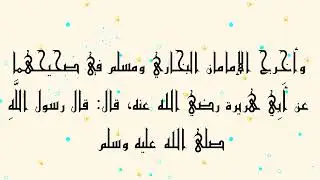 وأخرج الإمامان البخاري ومسلم في صحيحهما
عن أَبِي هريرة رضي الله عنه، قال: قال رسول اللَّهِ
صلى الله عليه وسلم